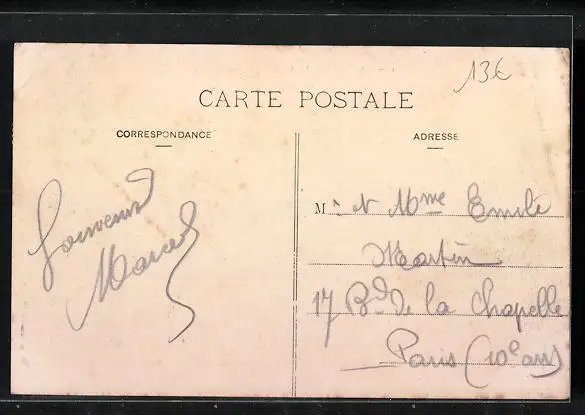 13€
CARTE POSTALE
CORRESPONDANCE
ADRESSE
Souvenir
Marcel
Mr & Mme Emile
Martin
17 Bd de la Chapelle
Paris (10e arr)